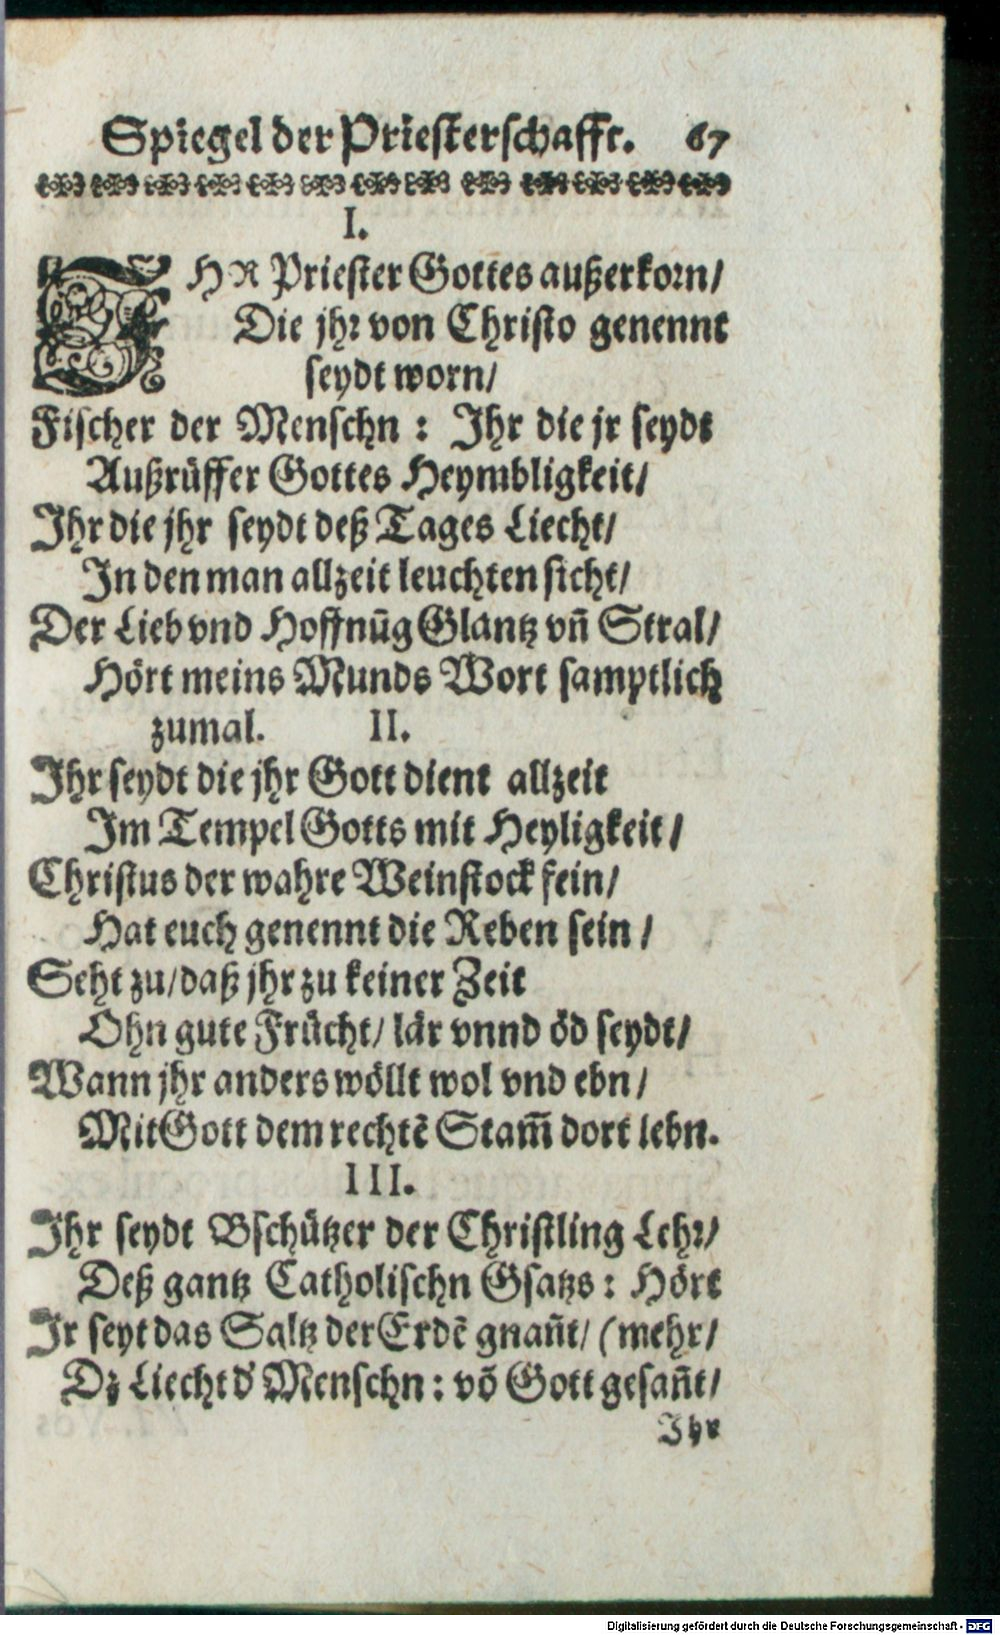 Spiegel der Priesterschafft. 67
I.
IHR Priester Gottes außerkorn/
Die jhr von Christo genennt
seydt worn/
Fischer der Menschn : Ihr die jr seydt
Außrüffer Gottes Heymbligkeit/
Ihr die jhr seydt deß Tages Liecht/
In den man allzeit leuchten sicht/
Der Lieb vnd Hoffnūg Glantz vñ Stral/
Hört meins Munds Wort samptlich
zumal. II.
Ihr seydt die jhr Gott dient allzeit
Im Tempel Gotts mit Heyligkeit/
Christus der wahre Weinstock fein/
Hat euch genennt die Reben sein/
Seht zu/daß jhr zu keiner Zeit
Ohn gute Frücht/ lär vnnd öd seydt/
Wann jhr anders wöllt wol vnd ebn/
Mit Gott dem rechtē Stam̄ dort lebn.
III.
Ihr seydt Bschützer der Christling Lehr/
Deß gantz Catholischn Gsatzs : Hört
Ir seyt das Saltz der Erdē gnañt/ (mehr/
Dz Liecht d' Menschn : võ Gott gesañt/
Ihr
Digitalisierung gefördert durch die Deutsche Forschungsgemeinschaft - DFG